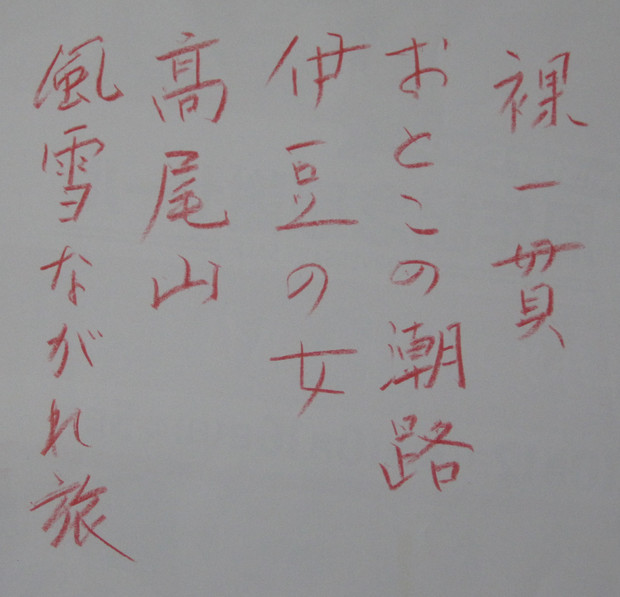 裸一貫
おとこの潮路
伊豆の女
髙尾山
風雪ながれ旅